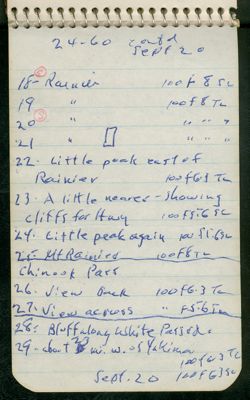 24-60 contd
Sept 20
18- Rainier 100 f 8 Sc
19 " 100 f 8 Tc
20 " " " "
21 " " " "
22- Little peak east of
Rainier 100 f 6.3 Tc
23- A little nearer - showing
cliffs for Huny 100 f 5.6 Sc
24- Little peak again 100 5.6 Sc
25- Mt Rainier 100 f 8 Tc
Chinook Pass
26- View Back 100 f 6.3 Tc
27- View across " f 5.6 Tc
28- Bluff along White Pass rd.
29- about 23 mi. w. of Yakima
100 f 6.3 Tc
Sept. 20 100 f 6.3 Sc